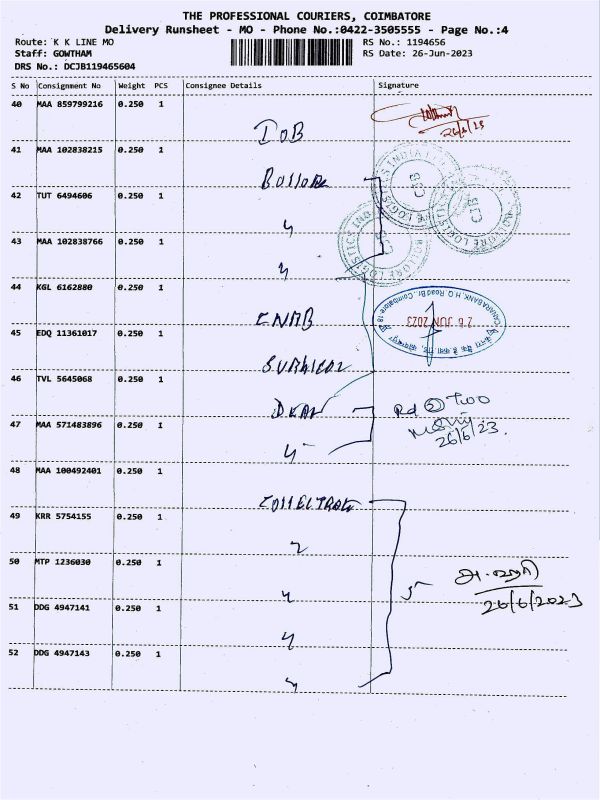 THE PROFESSIONAL COURIERS, COIMBATORE
Delivery Runsheet - MO - Phone No.:0422-3505555 - Page No.:4
Route: K K LINE MO RS No.: 1194656
Staff: GOWTHAM RS Date: 26-Jun-2023
DRS No.: DCJB119465604
S No Consignment No Weight PCS Consignee Details Signature
40 MAA 859799216 0.250 1
IOB
26/6/23
41 MAA 102838215 0.250 1
42 TUT 6494606 0.250 1
43 MAA 102838766 0.250 1
44 KGL 6162880 0.250 1
CANARA BANK, H.O. Road Br., Coimbatore-18
26 JUN 2023
45 EDQ 11361017 0.250 1
46 TVL 5645068 0.250 1
Rd 2 Two
47 MAA 571483896 0.250 1
26/6/23.
48 MAA 100492401 0.250 1
49 KRR 5754155 0.250 1
50 MTP 1236030 0.250 1
5
26/6/2023
51 DDG 4947141 0.250 1
52 DDG 4947143 0.250 1